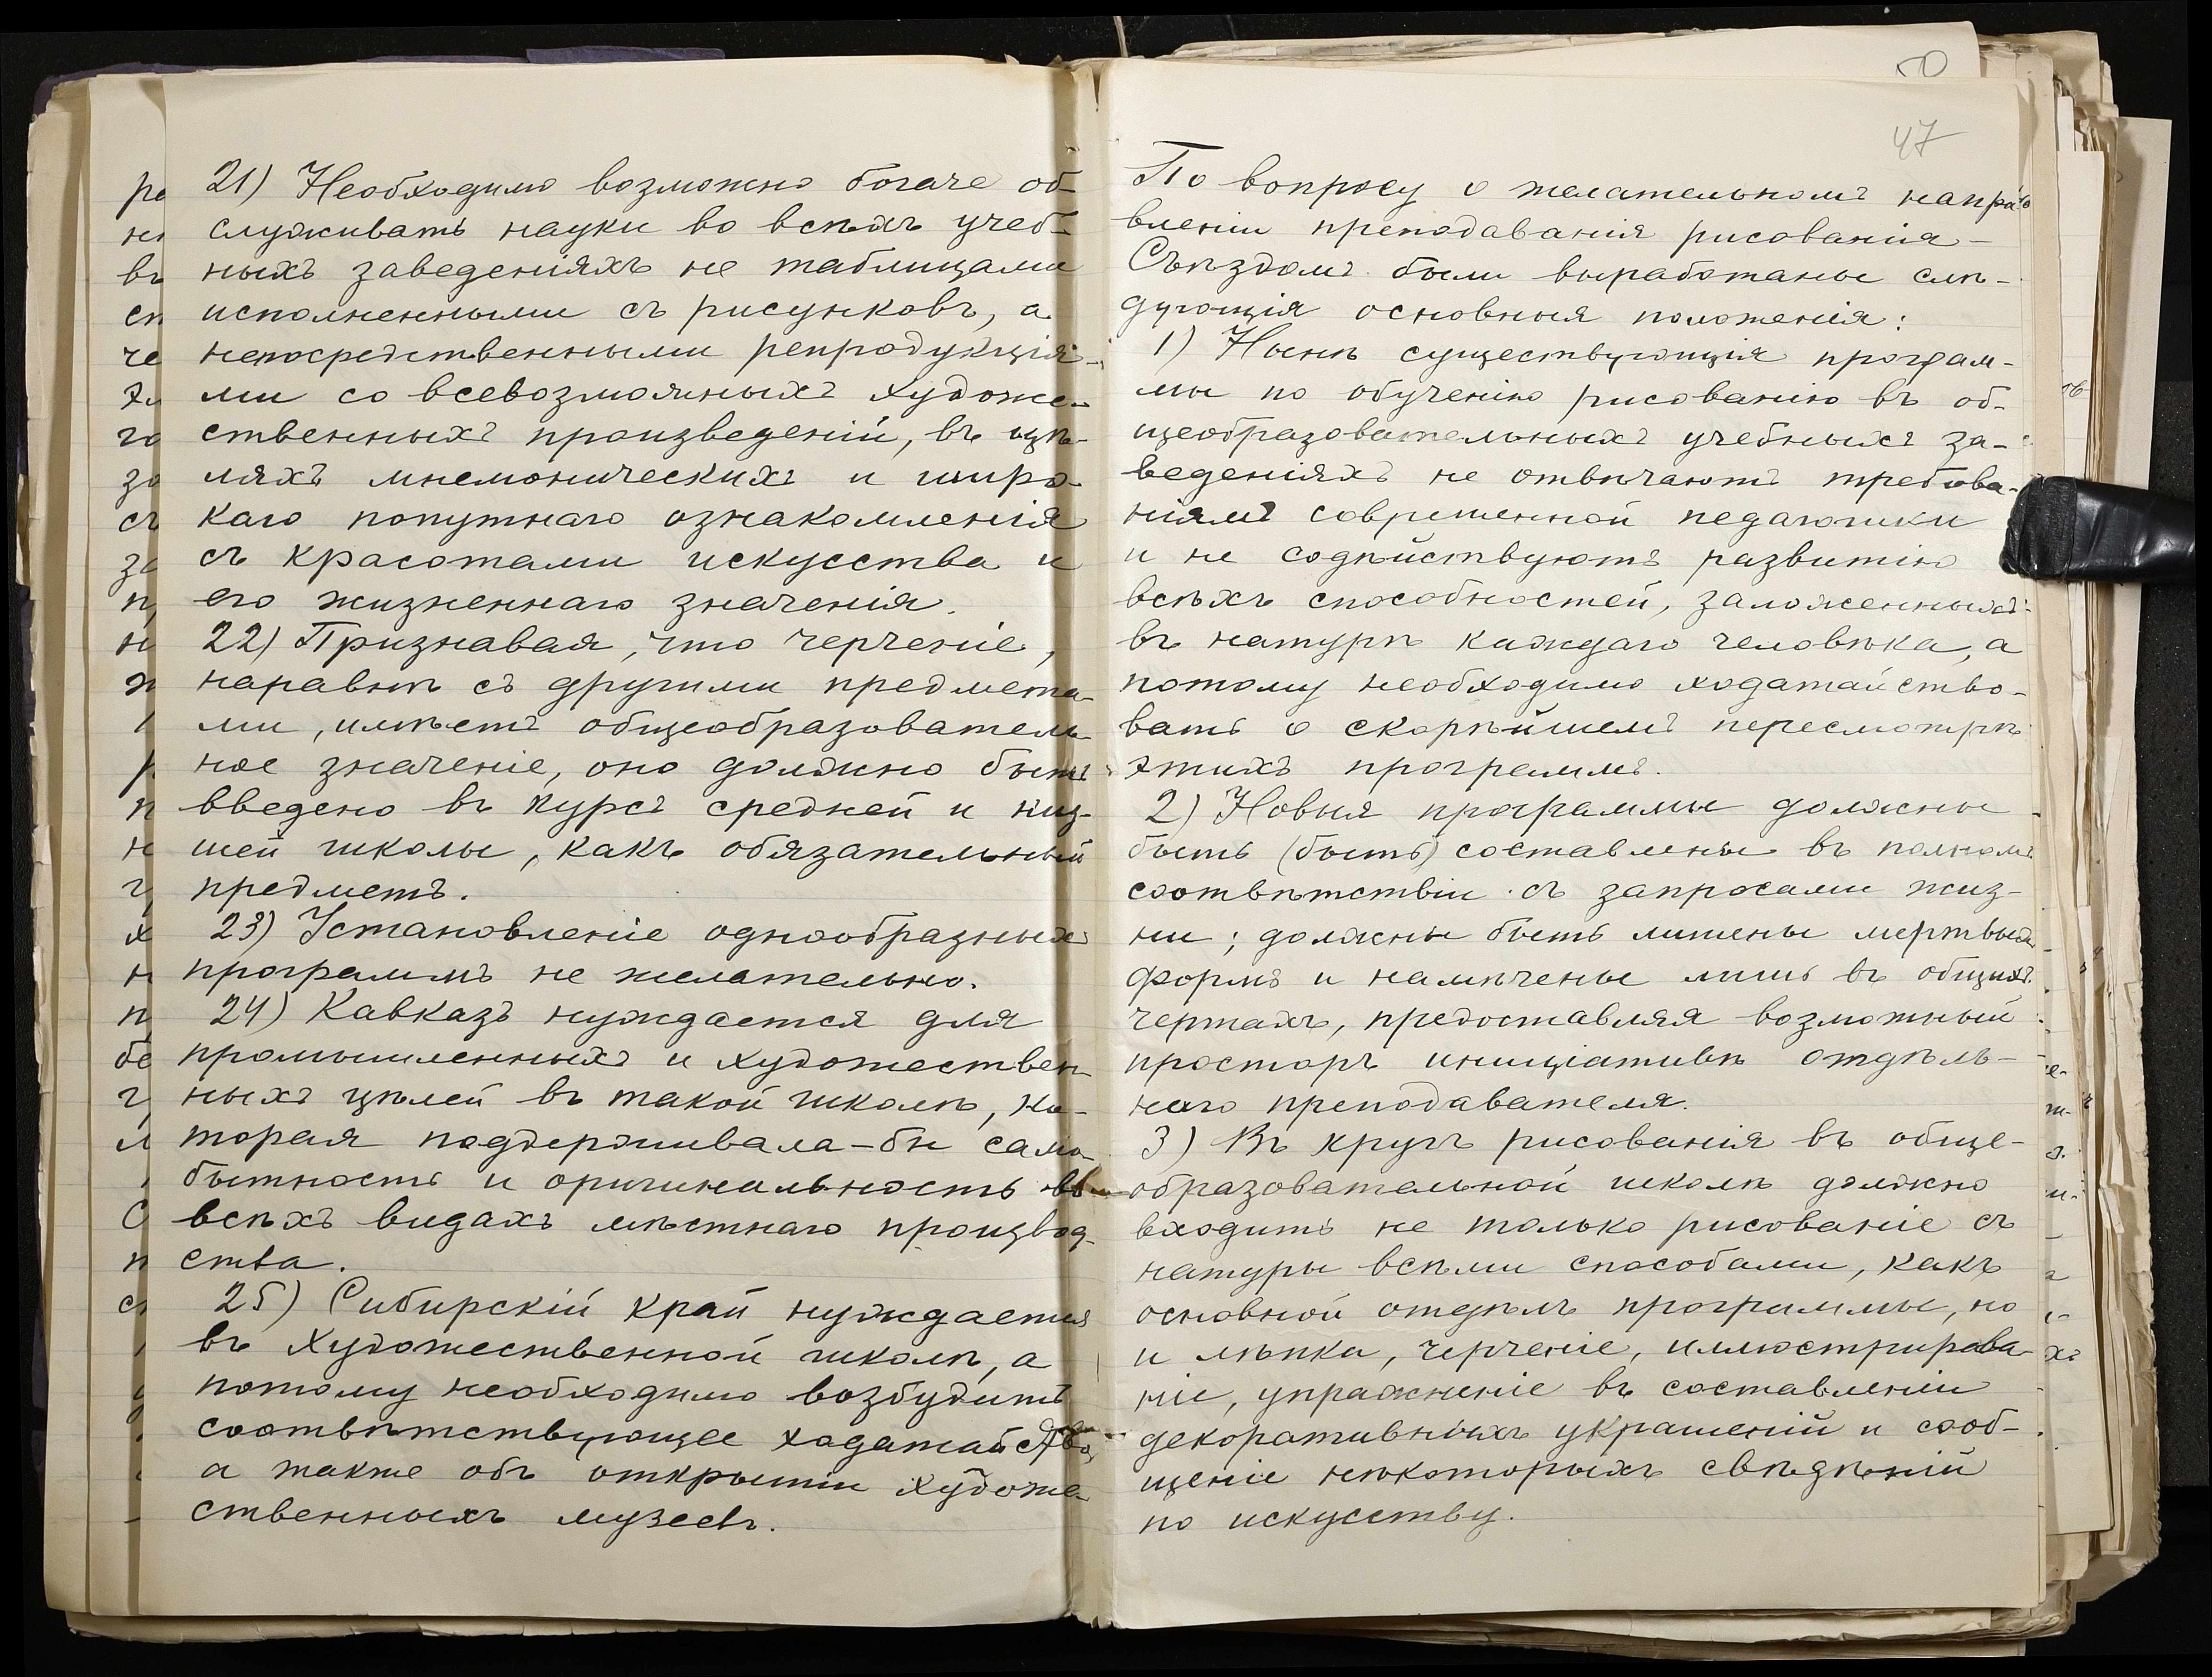 21) Необходимо возможно богаче об-
служивать науки во всѣхъ учеб-
ныхъ заведеніяхъ не таблицами
исполненными съ рисунковъ, а
непосредственными репродукція-
ми со всевозможныхъ художе-
ственныхъ произведеній, въ цѣ-
ляхъ мнемоническихъ и широ-
каго попутнаго ознакомленія
съ красотами искусства и
его жизненнаго значенія.
22) Признавая, что черченіе,
наравнѣ съ другими предмета-
ми, имѣетъ общеобразователь-
ное значеніе, оно должно быть
введено въ курсъ средней и низ-
шей школы, какъ обязательный
предметъ.
23) Установленіе однообразныхъ
программъ не желательно.
24) Кавказъ нуждается для
промышленныхъ и художествен-
ныхъ цѣлей въ такой школѣ, ко-
торая поддерживала-бы само-
бытность и оригинальность въ
всѣхъ видахъ мѣстнаго производ-
ства.
25) Сибирскій край нуждается
въ художественной школѣ, а
потому необходимо возбудить
соотвѣтствующее ходатайство,
а также объ открытіи художе-
ственныхъ музеевъ.
47
По вопросу о желательномъ напра-
вленіи преподаванія рисованія-
Съѣздомъ были выработаны слѣ-
дующія основныя положенія:
1) Нынѣ существующія програм-
мы по обученію рисованію въ об-
щеобразовательныхъ учебныхъ за-
веденіяхъ не отвѣчаютъ требова-
ніямъ современной педагогики
и не содѣйствуютъ развитію
всѣхъ способностей, заложенныхъ
въ натурѣ каждаго человѣка, а
потому необходимо ходатайство-
вать о скорѣйшемъ пересмотрѣ
этихъ программъ.
2) Новыя программы должны
быть (быть) составлены въ полномъ
соотвѣтствіи съ запросами жиз-
ни; должны быть лишены мертвыхъ
формъ и намѣчены лишь въ общихъ
чертахъ, предоставляя возможный
просторъ иниціативѣ отдѣль-
наго преподавателя.
3) Въ кругъ рисованія въ обще-
образовательной школѣ должно
входить не только рисованіе съ
натуры всѣми способами, какъ
основной отдѣлъ программы, но
и лѣпка, черченіе, иллюстрирова-
ніе, упражненіе въ составленіи
декоративныхъ украшеній и сооб-
щеніе нѣкоторыхъ свѣдѣній
по искусству.